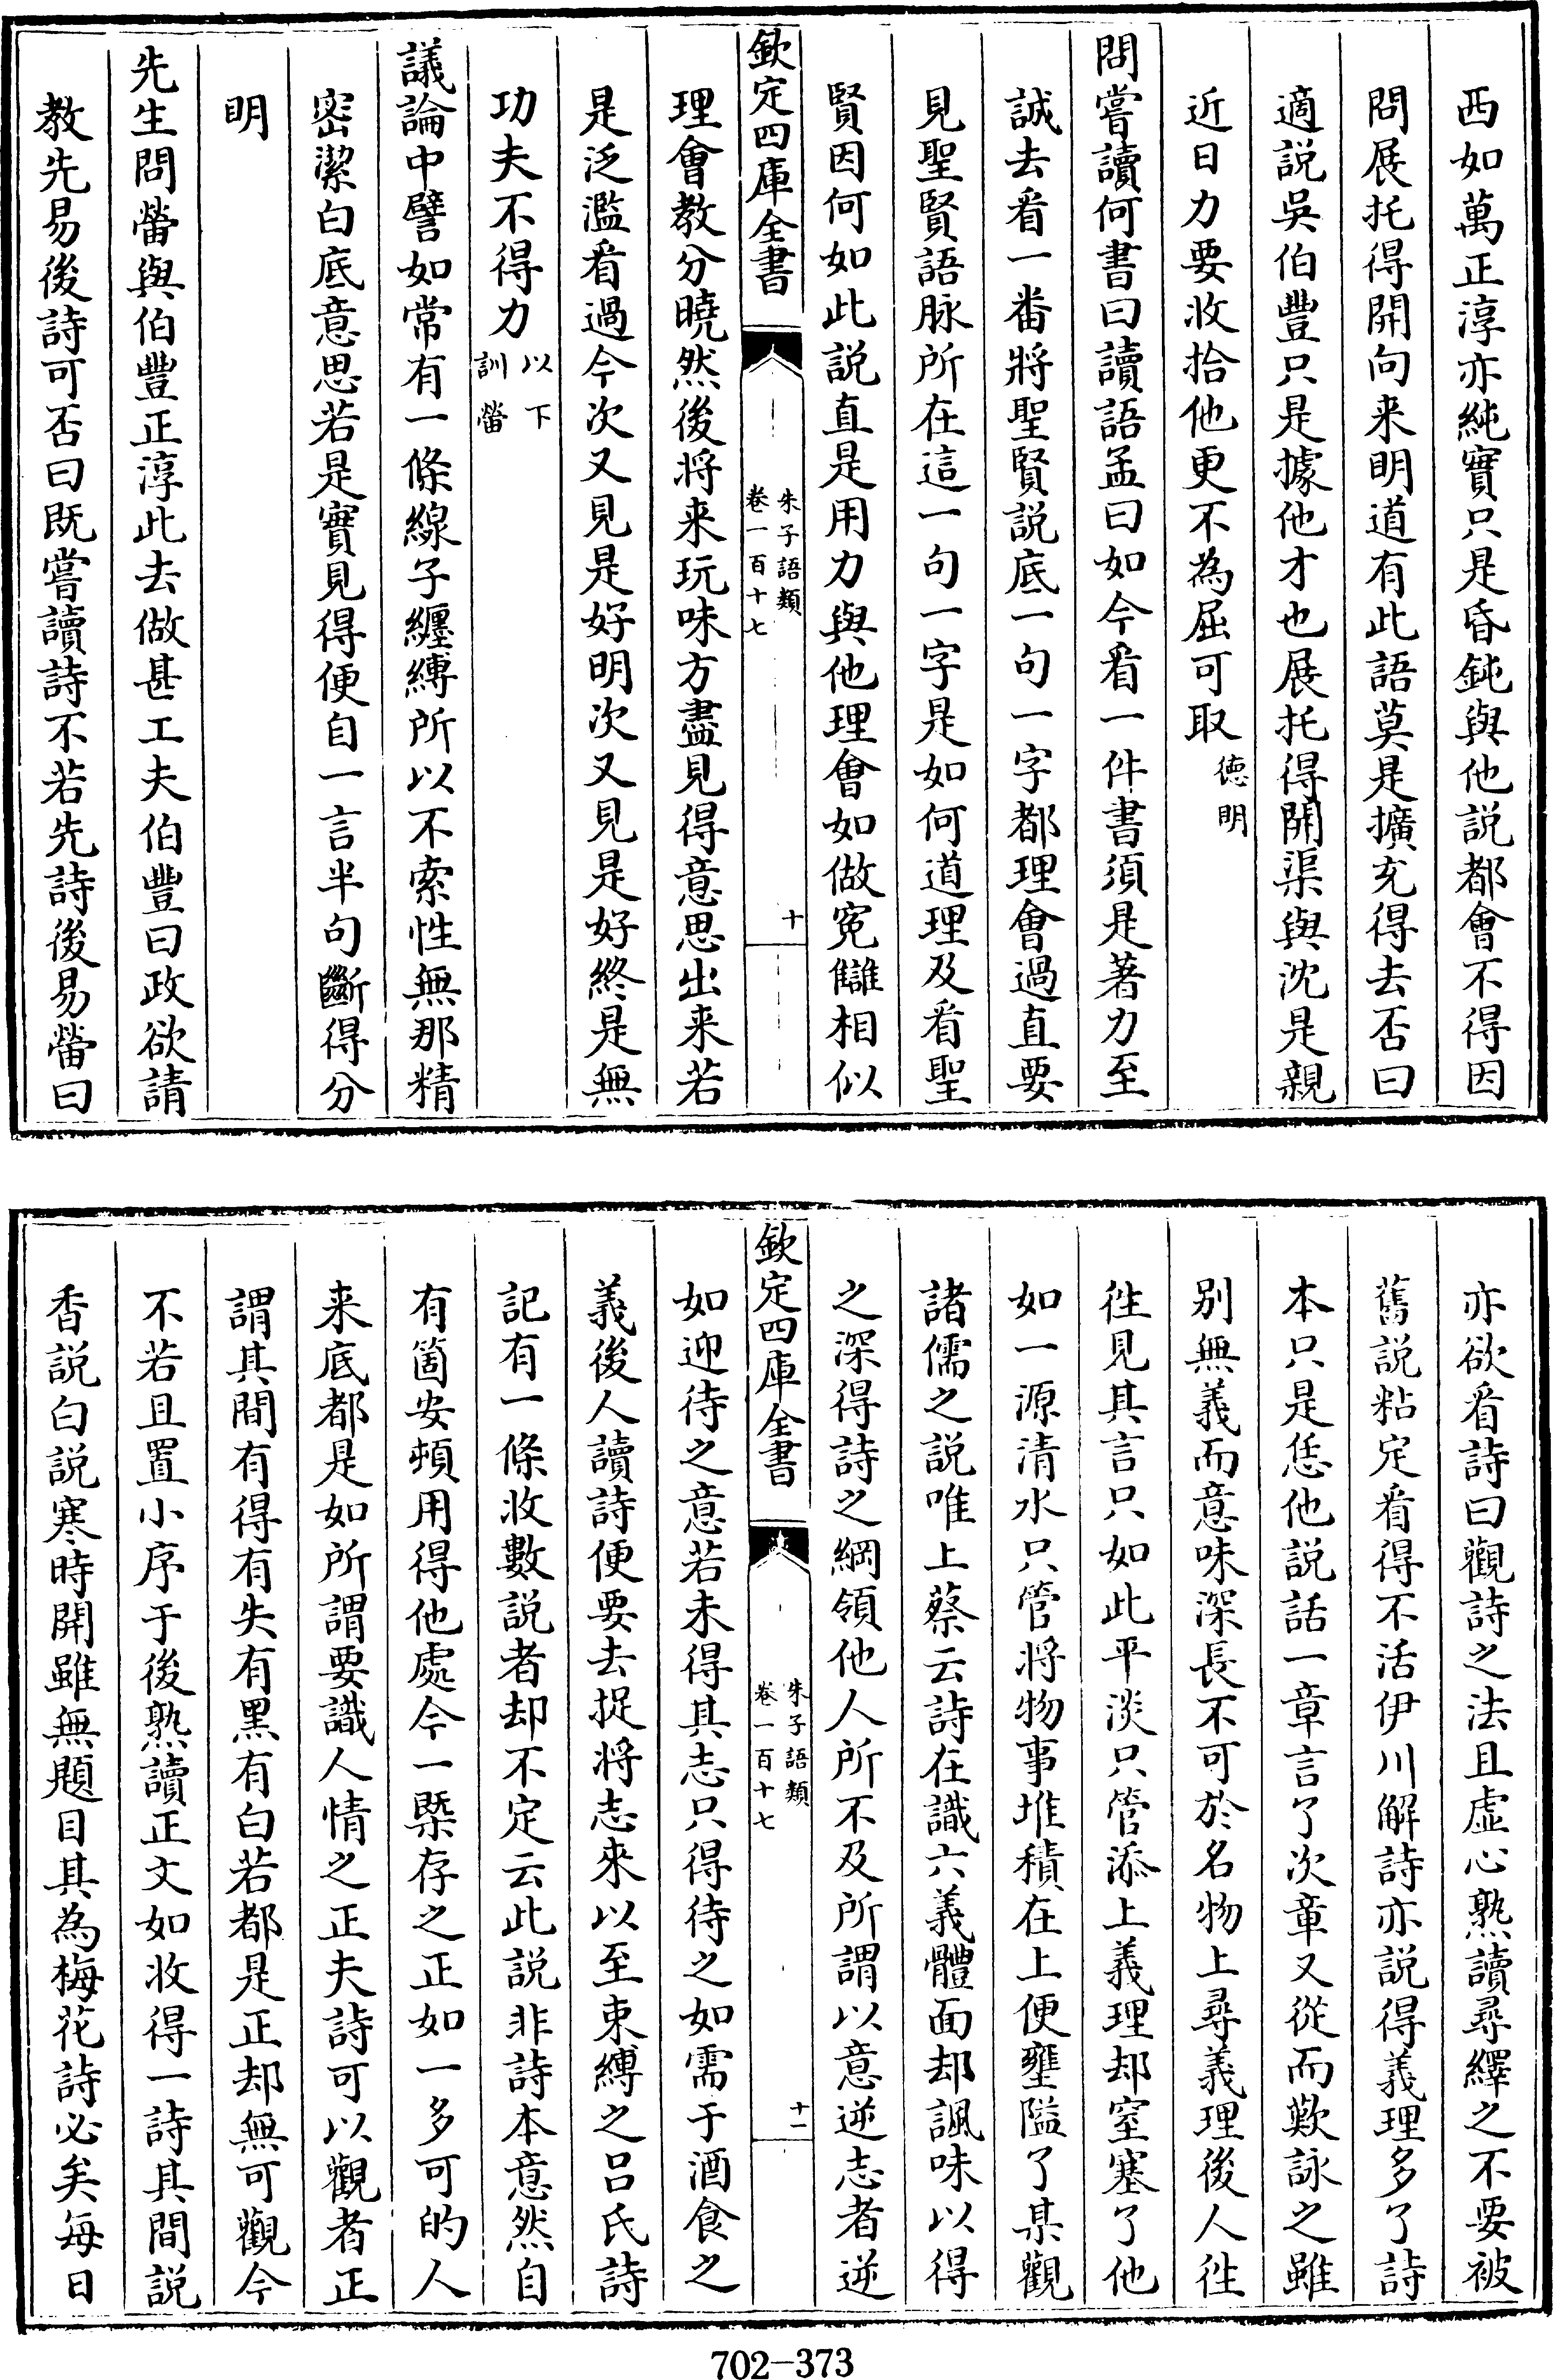 西如萬正淳亦純實只是昏鈍與他説都會不得因
問展托得開向来明道有此語莫是擴充得去否曰
適説吳伯豐只是據他才也展托得開渠與沈是親
近日力要收拾他更不為屈可取德明
問嘗讀何書曰讀語孟曰如今看一件書須是著力至
誠去看一番將聖賢説底一句一字都理會過直要
見聖賢語脉所在這一句一字是如何道理及看聖
賢因何如此説直是用力與他理會如做寃讎相似
欽定四庫全書
朱子語類
卷一百十七
十
理會教分曉然後将来玩味方盡見得意思出来若
是泛濫看過今次又見是好明次又見是好終是無
功夫不得力以下訓㽦
議論中譬如常有一條線子纏縛所以不索性無那精
密潔白底意思若是實見得便自一言半句斷得分
明
先生問㽦與伯豐正淳此去做甚工夫伯豐曰政欲請
教先易後詩可否曰既嘗讀詩不若先詩後易㽦曰
亦欲看詩曰觀詩之法且虚心熟讀尋繹之不要被
舊説粘定看得不活伊川解詩亦説得義理多了詩
本只是恁他説話一章言了次章又從而歎詠之雖
别無義而意味深長不可於名物上尋義理後人徃
徃見其言只如此平淡只管添上義理却窒塞了他
如一源清水只管将物事堆積在上便壅隘了某觀
諸儒之説唯上蔡云詩在識六義體面却諷味以得
之深得詩之綱領他人所不及所謂以意逆志者逆
欽定四庫全書
朱子語類
卷一百十七
十一
如迎待之意若未得其志只得待之如需于酒食之
義後人讀詩便要去捉将志來以至束縛之吕氏詩
記有一條收數説者却不定云此説非詩本意然自
有箇安頓用得他處今一槩存之正如一多可的人
来底都是如所謂要識人情之正夫詩可以觀者正
謂其間有得有失有黑有白若都是正却無可觀今
不若且置小序于後熟讀正文如收得一詩其間説
香説白説寒時開雖無題目其為梅花詩必矣每日
702-373